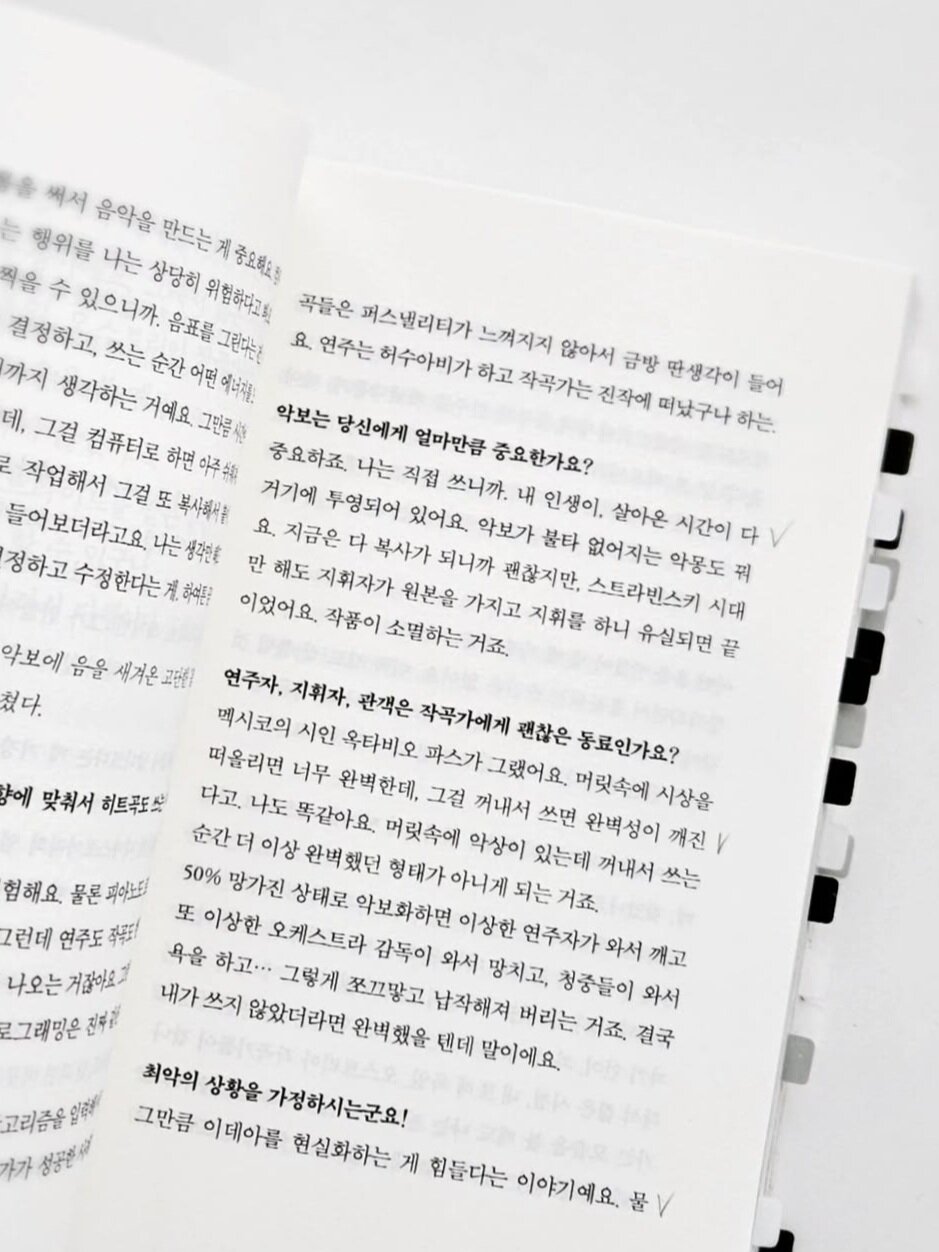 써서 음악을 만드는 게 중요해요.
는 행위를 나는 상당히 위험하다고
찍을 수 있으니까. 음표를 그린다는
결정하고, 쓰는 순간 어떤 에너지를
까지 생각하는 거예요. 그만큼
데, 그걸 컴퓨터로 하면 아주
작업해서 그걸 또 복사해서
들어보더라고요. 나는 생각만
결정하고 수정한다는 게, 하여튼
악보에 음을 새겨온 고단한
쳤다.
향에 맞춰서 히트곡도
험해요. 물론 피아노도
그런데 연주도 작곡도
나오는 거잖아요.
로그래밍은 진짜
고리즘을 입력해
가가 성공한
곡들은 퍼스낼리티가 느껴지지 않아서 금방 딴생각이 들어
요. 연주는 허수아비가 하고 작곡가는 진작에 떠났구나 하는.
악보는 당신에게 얼마만큼 중요한가요?
중요하죠. 나는 직접 쓰니까. 내 인생이, 살아온 시간이 다
거기에 투영되어 있어요. 악보가 불타 없어지는 악몽도 꿔
요. 지금은 다 복사가 되니까 괜찮지만, 스트라빈스키 시대
만 해도 지휘자가 원본을 가지고 지휘를 하니 유실되면 끝
이었어요. 작품이 소멸하는 거죠.
연주자, 지휘자, 관객은 작곡가에게 괜찮은 동료인가요?
멕시코의 시인 옥타비오 파스가 그랬어요. 머릿속에 시상을
떠올리면 너무 완벽한데, 그걸 꺼내서 쓰면 완벽성이 깨진
다고. 나도 똑같아요. 머릿속에 악상이 있는데 꺼내서 쓰는
순간 더 이상 완벽했던 형태가 아니게 되는 거죠.
50% 망가진 상태로 악보화하면 이상한 연주자가 와서 깨고
또 이상한 오케스트라 감독이 와서 망치고, 청중들이 와서
욕을 하고… 그렇게 쪼끄맣고 납작해져 버리는 거죠. 결국
내가 쓰지 않았더라면 완벽했을 텐데 말이에요.
최악의 상황을 가정하시는군요!
그만큼 이데아를 현실화하는 게 힘들다는 이야기예요. 물